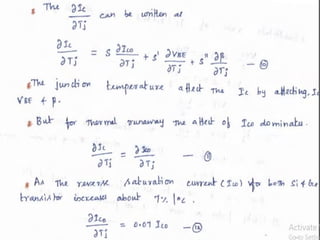 The ∂Ic/∂Tj can be written as
∂Ic/∂Tj = S ∂Ico/∂Tj + S' ∂VBE/∂Tj + S'' ∂β/∂Tj — ⑩
The junction temperature affect the Ic by affecting, Ic
VBE & β.
But for thermal runaway the affect of Ico dominate.
∂Ic/∂Tj = ∂Ico/∂Tj — ⑪
As the reverse saturation current (Ico) for both Si & Ge
transistor increases about 7% /°c
∂Ico/∂Tj = 0.07 Ico — ⑫
Activate
Go to Setti